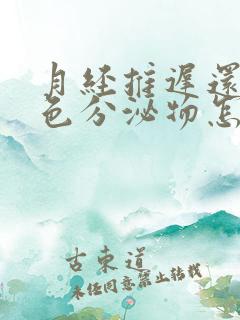 月经推迟还
色分泌物怎
古东道
未经同意禁止转载